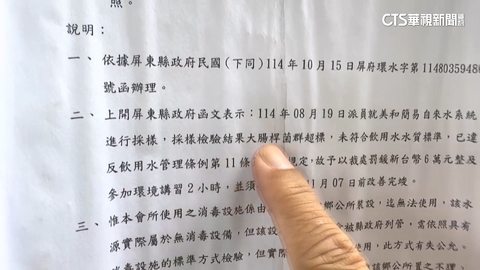 CTS華視新聞
照。
說明：
一、依據屏東縣政府民國(下同)114年10月15日屏府環水字第1148035948
號函辦理。
二、上開屏東縣政府函文表示：114年08月19日派員就美和簡易自來水系統
進行採樣，採樣檢驗結果大腸桿菌群超標，未符合飲用水水質標準，已違
反飲用水管理條例第11條 規定，故予以裁處罰鍰新台幣6萬元整及
參加環境講習2小時，並須 月07日前改善完竣。
三、惟本會所使用之消毒設施係由 鄉公所裝設，迄無法使用，該水
源實際屬於無消毒設備，但該設 被縣政府列管，需依照具有
消毒設施的標準方式檢驗，但實際 使用，此方式有失公允。